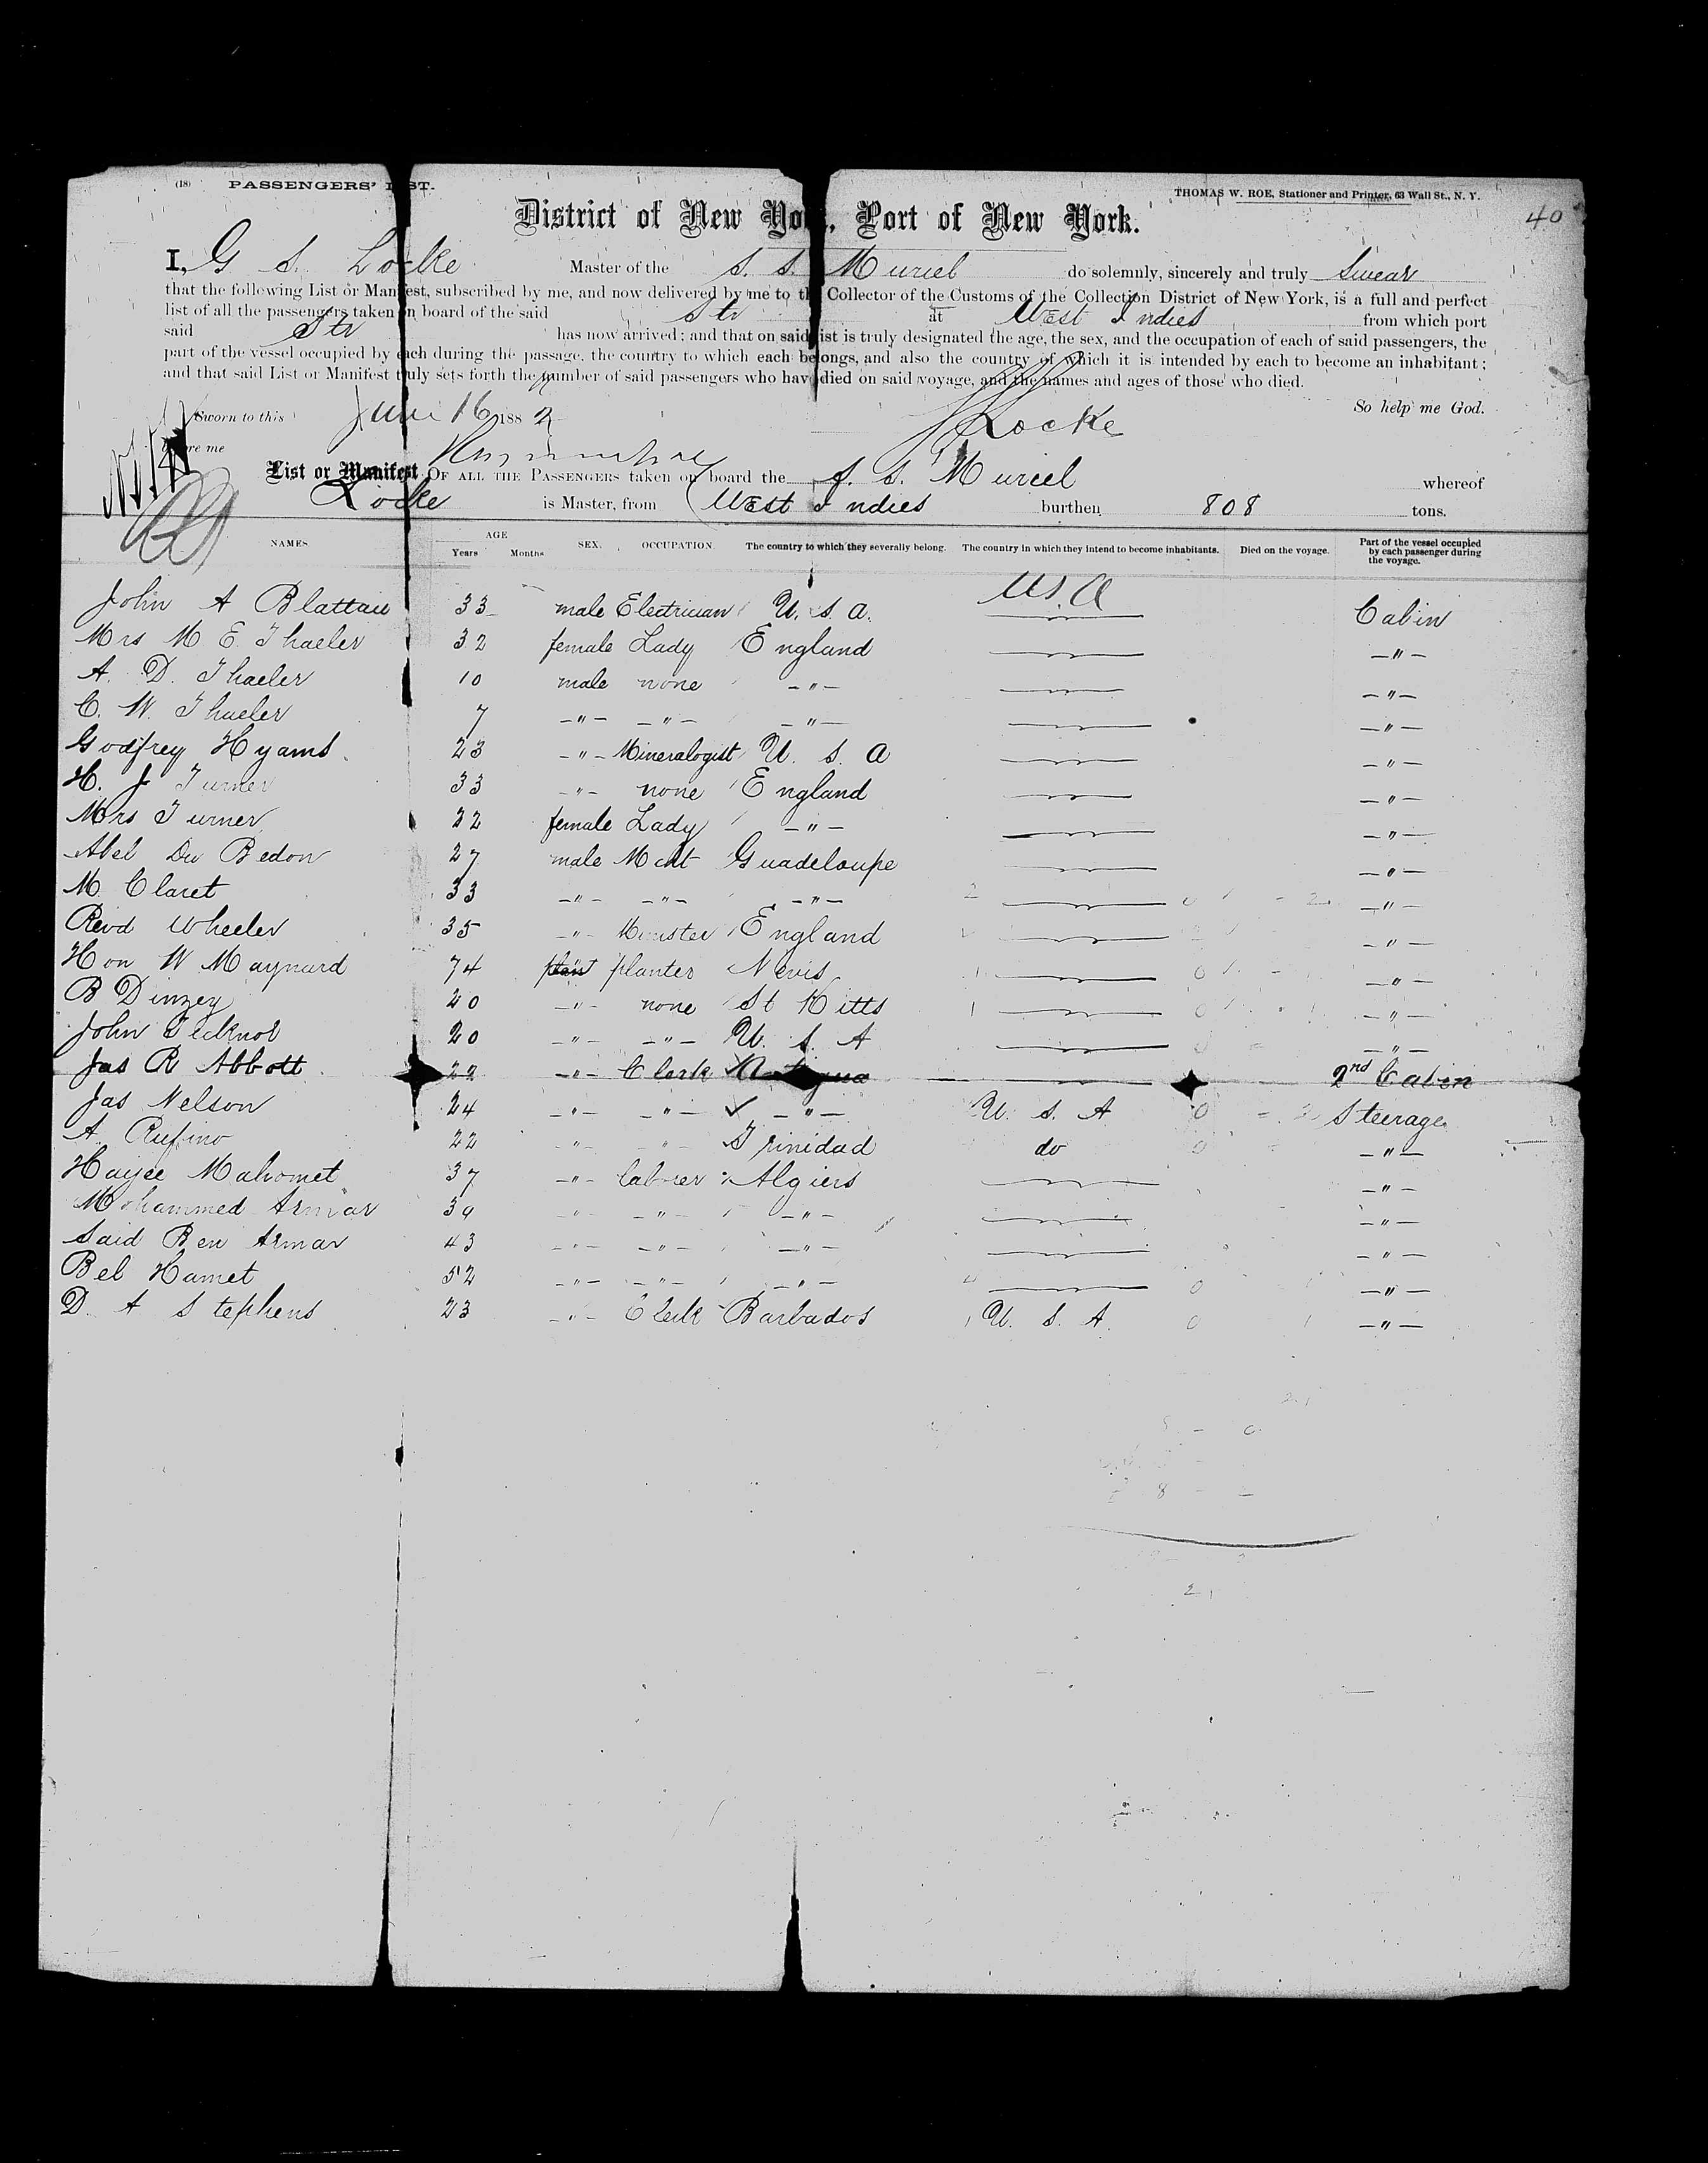 (18) PASSENGERS' LIST.
THOMAS W. ROE, Stationer and Printer, 63 Wall St., N. Y.
40
District of New York, Port of New York.
I, G S. Locke Master of the S. S. Muriel do solemnly, sincerely and truly Swear
that the following List or Manifest, subscribed by me, and now delivered by me to the Collector of the Customs of the Collection District of New York, is a full and perfect
list of all the passengers taken on board of the said Str at West Indies from which port
said Str has now arrived; and that on said list is truly designated the age, the sex, and the occupation of each of said passengers, the
part of the vessel occupied by each during the passage, the country to which each belongs, and also the country of which it is intended by each to become an inhabitant;
and that said List or Manifest truly sets forth the number of said passengers who have died on said voyage, and the names and ages of those who died.
So help me God.
Sworn to this June 16 1882 Locke
before me
List or Manifest OF ALL THE PASSENGERS taken on board the S. S. Muriel whereof
Locke is Master, from West Indies burthen 808 tons.
NAMES. AGE Years Months SEX. OCCUPATION. The country to which they severally belong. The country in which they intend to become inhabitants. Died on the voyage. Part of the vessel occupied by each passenger during the voyage.
John A Blattau 33 male Electrician U. S. A. U.S.A Cabin
Mrs M E Thaeler 32 female Lady England —"—
A. D. Thaeler 10 male none —"— —"—
C. W. Thaeler 7 —"— —"— —"— —"—
Godfrey Hyams 23 —"— Mineralogist U. S. A —"—
H. J Turner 33 —"— none England —"—
Mrs Turner 32 female Lady —"— —"—
Abel Du Bedon 27 male Mcht Guadeloupe —"—
M. Claret 33 —"— —"— —"— —"—
Revd Wheeler 35 —"— Minister England —"—
Hon W Maynard 74 plant planter Nevis —"—
B Dinzey 20 —"— none St Kitts —"—
John Ticknor 20 —"— —"— U. S. A —"—
Jas R Abbott 22 —"— Clerk Antigua 2nd Cabin
Jas Nelson 24 —"— —"— —"— U. S. A Steerage
A. Rufino 22 —"— —"— Trinidad do —"—
Hayee Mahomet 37 —"— laborer Algiers —"—
Mohammed Armar 39 —"— —"— —"— —"—
Said Ben Armar 43 —"— —"— —"— —"—
Bel Hamet 52 —"— —"— —"— —"—
D. A Stephens 23 —"— Clerk Barbados U. S. A. —"—